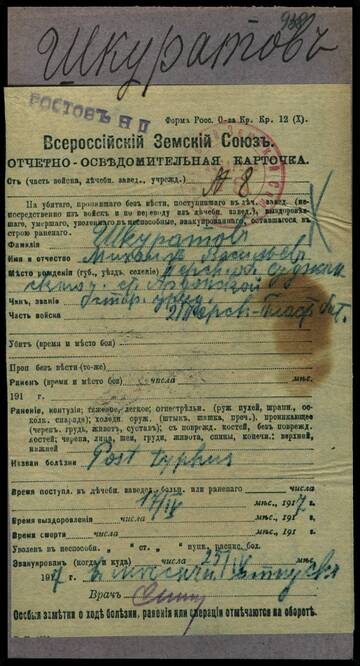 Шкуратовъ
РОСТОВЪ Н Д
Форма Росс. О-ва Кр. Кр. 12 (X).
Всероссійскій Земскій Союзъ.
ОТЧЕТНО-ОСВѢДОМИТЕЛЬНАЯ КАРТОЧКА.
Отъ (часть войска, лѣчебн. завед., учрежд.) № 8
На убитаго, пропавшаго безъ вѣсти, поступившаго въ лѣч. завед. (не-
посредственно изъ войскъ и по переводу изъ лѣчебн. завед.), выздоровѣв-
шаго, умершаго, уволеннаго въ неспособные, эвакуированнаго, оставшагося въ
строю раненаго.
Фамилія Шкуратовъ
Имя и отчество Михаилъ
Мѣсто рожденія (губ., уѣздъ, селеніе)
Чинъ, званіе
Часть войска
Убитъ (время и мѣсто боя)
Проп. безъ вѣсти (то-же)
Раненъ (время и мѣсто боя) числа мѣс.
191 г.
Раненіе, контузія: тяжелое, легкое; огнестрѣльн. (руж. пулей, шрапн., оскол.
снаряда); холодн. оруж. (штык., шашка, проч.), проникающее
(черепъ, грудь, животъ, суставъ); съ поврежд. костей, безъ поврежд.
костей; черепа, лица, шеи, груди, живота, спины, конечн.: верхней,
нижней
Назван. болѣзни Post typhus
Время поступ. въ лѣчебн. заведен. больн. или раненаго числа
17/IV мѣс., 1917 г.
Время выздоровленія числа мѣс., 191 г.
Время смерти числа мѣс., 191 г.
Уволенъ въ неспособн. „ ст. „ пунк. распис. бол.
Эвакуированъ (когда и куда)
1917
Врачъ
Особыя замѣтки о ходѣ болѣзни, раненія или операціи отмѣчаются на оборотѣ.